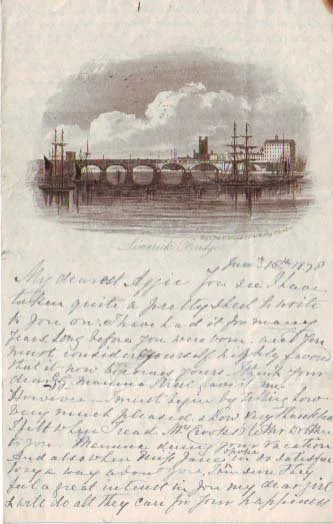 Limerick Bridge
June 16th 1878
My dearest Aggie You see I have
taken quite a pretty sheet to write
to you on, I have had it for many
years long before you were born and you
must consider yourself highly favored
that it now becomes yours. I think your
dear mamma gave it me
However I must begin by telling how
very much pleased & how very thankful
I felt when I read Mrs Crookes letter written
to your Mamma during your vacation
And also when Miss Julie spoke in so satisfac
tory a way about you, I'm sure they
feel a great interest in you my dear girl
& will do all they can for your happiness